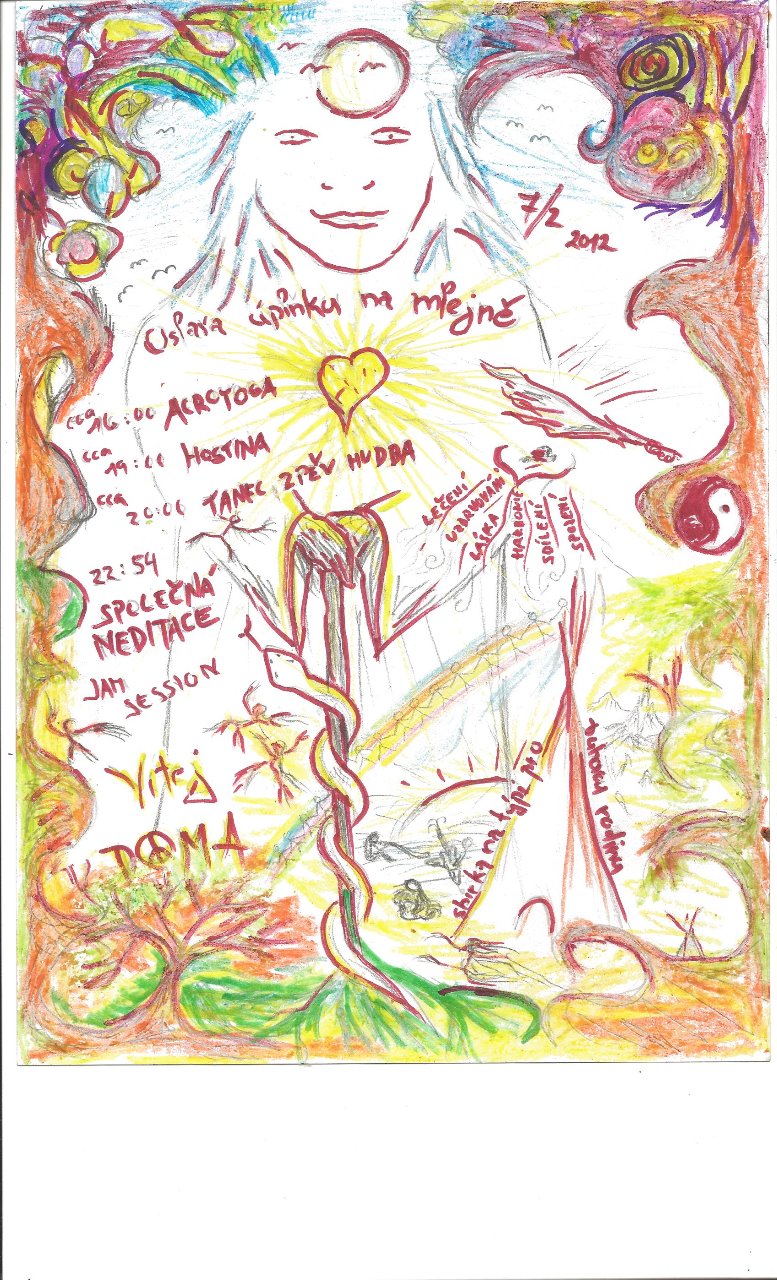 7/2
2012
Oslava úplňku na mlejně
cca 16:00 ACROYOGA
cca 19:00 HOSTINA
cca 20:00 TANEC ZPĚV HUDBA
22:54
SPOLEČNÁ
MEDITACE
JAM
SESSION
LÉČENÍ
UZDRAVOVÁNÍ
LÁSKA
HARMONIE
SDÍLENÍ
SPOJENÍ
Vítej
DOMA
sbírka na týpí pro
duhovou rodinu